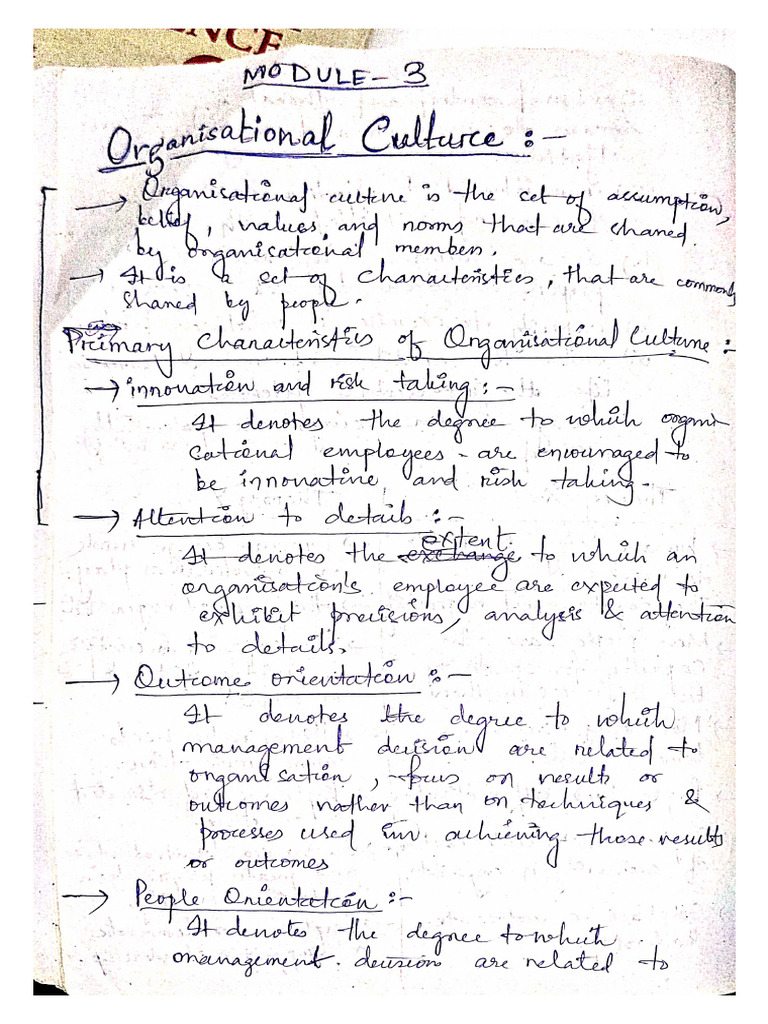 ENCE
MODULE - 3
Organisational Culture :-
→ Organisational culture is the set of assumption,
belief, values, and norms that are shared
by organisational member.
→ It is a set of characteristics, that are commonly
shared by people.
Primary Characteristics of Organisational Culture :-
→ innovation and risk taking :-
It denotes the degree to which organi
sational employees are encouraged to
be innovative and risk taking.
→ Attention to details :-
extent
It denotes the exchange to which an
organisation's employee are expected to
exhibit precisions, analysis & attention
to details.
→ Outcome orientation :-
It denotes the degree to which
management decision are related to
organisation, focus on results or
outcomes rather than on techniques &
processes used in achieving those results
or outcomes
→ People Orientation :-
It denotes the degree to which
management decision are related to